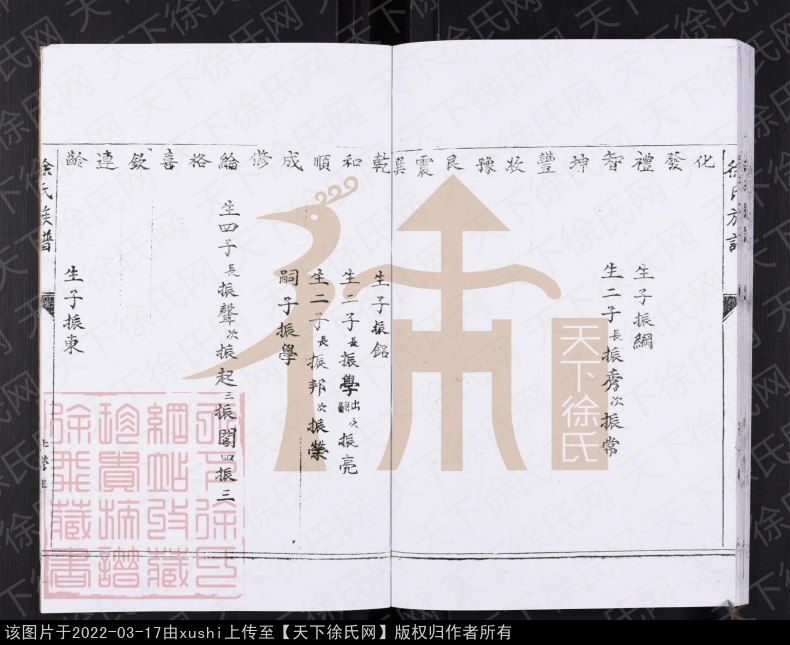 徐氏族譜
化
發
禮
生子振綱
智
生二子長振秀次振常
坤
豐
妝
豫
良
震
巽
乾
生子振銘
和
生二子長振學出嗣次振亮
順
生二子長振邦次振榮
成
嗣子振學
修
綸
生四子長振聲次振起三振閣四振三
格
喜
欽
連
齡
生子振東
徐氏族譜
天下徐氏
天下徐氏网
该图片于2022-03-17由xushi上传至【天下徐氏网】版权归作者所有